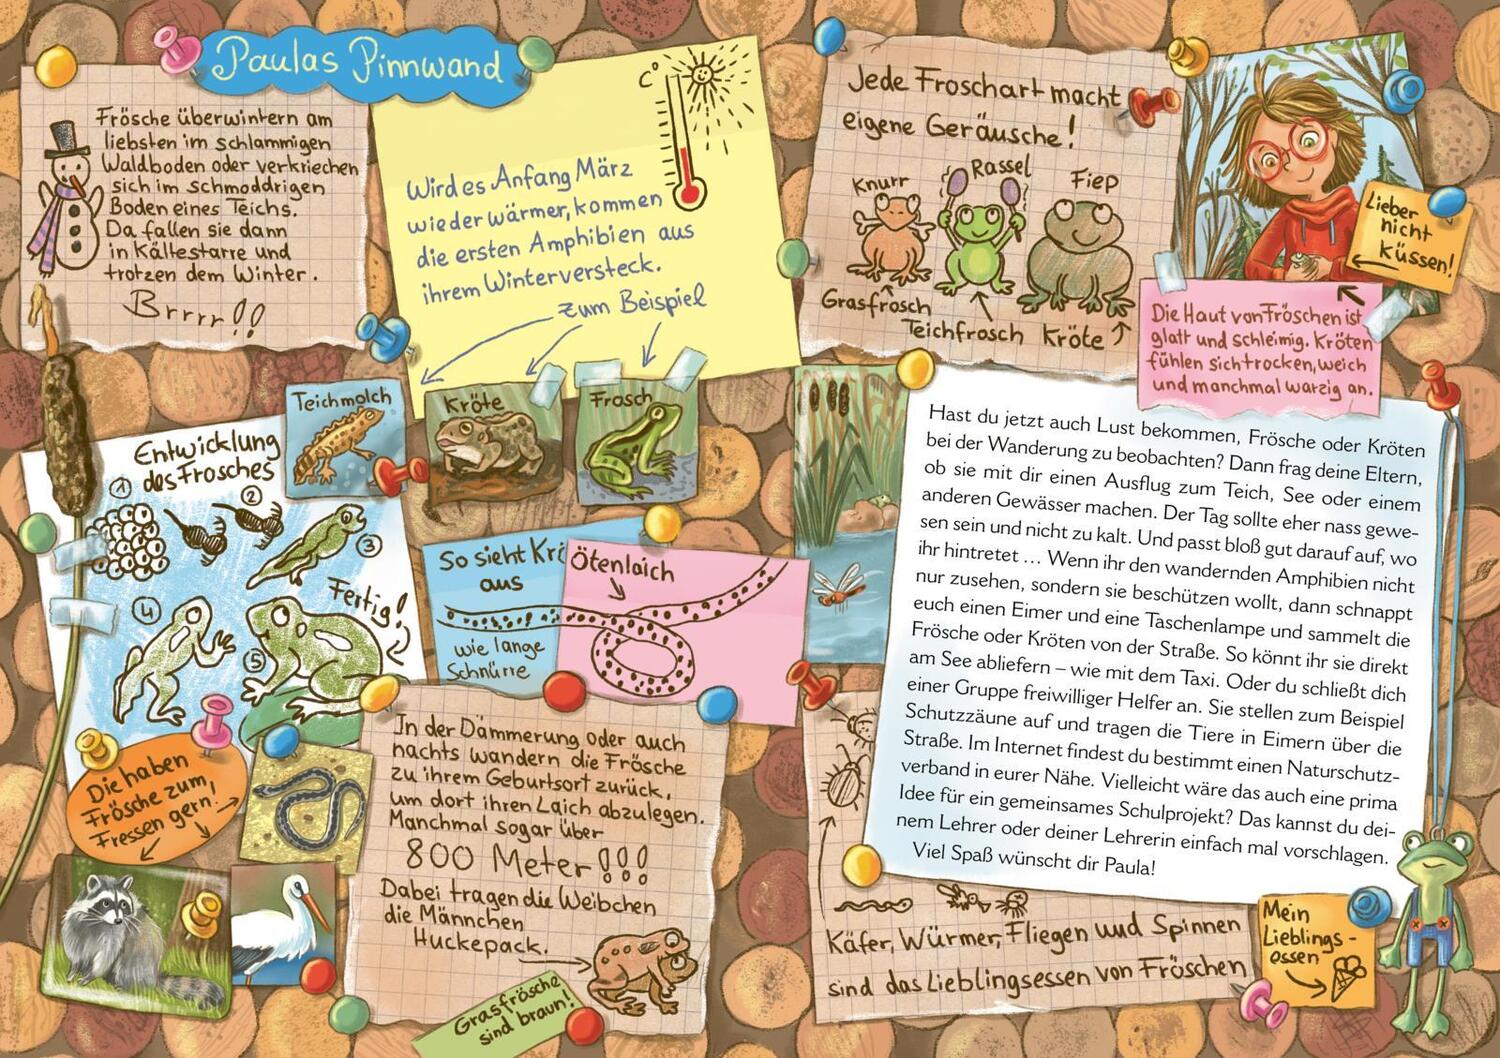 Paulas Pinnwand
Frösche überwintern am
liebsten im schlammigen
Waldboden oder verkriechen
sich im schmoddrigen
Boden eines Teichs.
Da fallen sie dann
in Kältestarre und
trotzen dem Winter.
Brrrr!!
C°
Wird es Anfang März
wieder wärmer, kommen
die ersten Amphibien aus
ihrem Winterversteck.
zum Beispiel
Teichmolch
Kröte
Frosch
Entwicklung
des Frosches
1
2
3
4
5
Fertig!
So sieht Krö
aus
Ötenlaich
wie lange
Schnürre
Die haben
Frösche zum
Fressen gern!
In der Dämmerung oder auch
nachts wandern die Frösche
zu ihrem Geburtsort zurück,
um dort ihren Laich abzulegen.
Manchmal sogar über
800 Meter!!!
Dabei tragen die Weibchen
die Männchen
Huckepack.
Grasfrösche
sind braun!
Jede Froschart macht
eigene Geräusche!
Knurr
Rassel
Fiep
Grasfrosch
Teichfrosch
Kröte
Lieber
nicht
küssen!
Die Haut von Fröschen ist
glatt und schleimig. Kröten
fühlen sich trocken, weich
und manchmal warzig an.
Hast du jetzt auch Lust bekommen, Frösche oder Kröten
bei der Wanderung zu beobachten? Dann frag deine Eltern,
ob sie mit dir einen Ausflug zum Teich, See oder einem
anderen Gewässer machen. Der Tag sollte eher nass gewe-
sen sein und nicht zu kalt. Und passt bloß gut darauf auf, wo
ihr hintretet ... Wenn ihr den wandernden Amphibien nicht
nur zusehen, sondern sie beschützen wollt, dann schnappt
euch einen Eimer und eine Taschenlampe und sammelt die
Frösche oder Kröten von der Straße. So könnt ihr sie direkt
am See abliefern – wie mit dem Taxi. Oder du schließt dich
einer Gruppe freiwilliger Helfer an. Sie stellen zum Beispiel
Schutzzäune auf und tragen die Tiere in Eimern über die
Straße. Im Internet findest du bestimmt einen Naturschutz-
verband in eurer Nähe. Vielleicht wäre das auch eine prima
Idee für ein gemeinsames Schulprojekt? Das kannst du dei-
nem Lehrer oder deiner Lehrerin einfach mal vorschlagen.
Viel Spaß wünscht dir Paula!
Käfer, Würmer, Fliegen und Spinnen
sind das Lieblingsessen von Fröschen
Mein
Lieblings-
essen